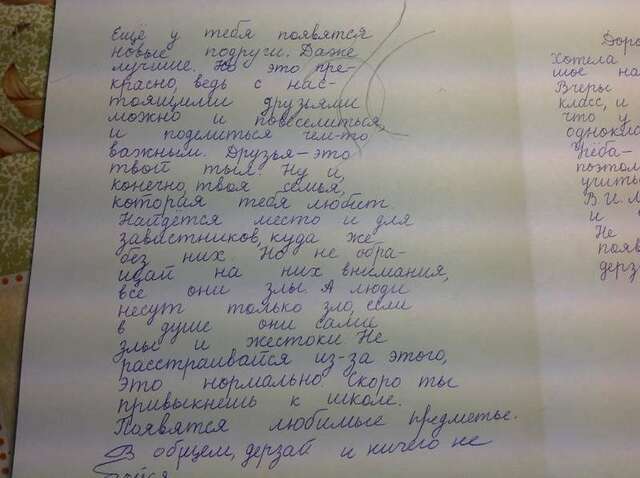 Ещё у тебя появятся
новые подруги. Даже
лучшие. Но это пре-
красно, ведь с нас-
тоящими друзьями
можно и повеселиться,
и поделиться чем-то
важным. Друзья – это
твой тыл. Ну и,
конечно, твоя семья,
которая тебя любит.
Найдётся место и для
завистников, куда же
без них. Но не обра-
щай на них внимания,
все они злы. А люди
несут только зло, если
в душе они сами
злы и жестоки. Не
расстраивайся из-за этого,
это нормально. Скоро ты
привыкнешь к школе.
Появятся любимые предметы.
В общем, дерзай и ничего не
Доро
Хотела
мое на
Вчеры
класс, и
что у
однокла
Учёба-
поэтом
учитьс
В.И.
и
Не
появ
дерз